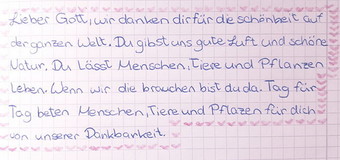 Lieber Gott, wir danken dir für die schönheit auf
der ganzen Welt. Du gibst uns gute Luft und schöne
Natur. Du Lässt Menschen, Tiere und Pflanzen
Leben. Wenn wir die brauchen bist du da. Tag für
Tag beten Menschen, Tiere und Pflazen für dich
von unserer Dankbarkeit.